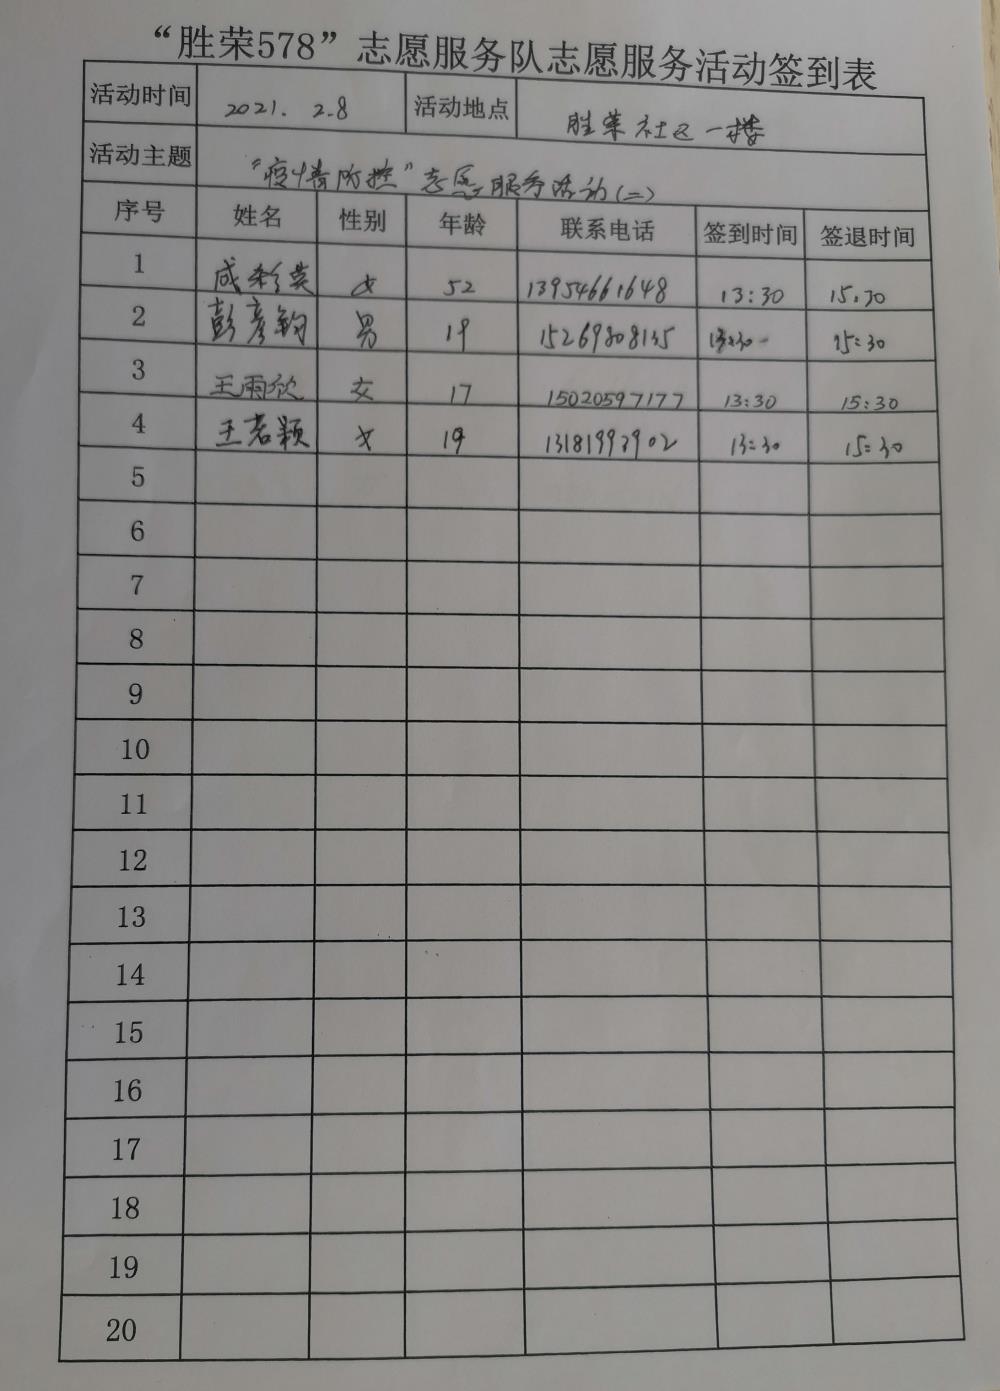 “胜荣578”志愿服务队志愿服务活动签到表
活动时间 2021. 2.8 活动地点 胜荣社区一楼
活动主题 “疫情防控”志愿服务活动(二)
序号 姓名 性别 年龄 联系电话 签到时间 签退时间
1 成彩英 女 52 13954661648 13:30 15.30
2 彭彦钧 男 19 15269808135 13:30 15:30
3 王雨欣 女 17 15020597177 13:30 15:30
4 王若颖 女 19 13181993902 13:30 15:30
5
6
7
8
9
10
11
12
13
14
15
16
17
18
19
20